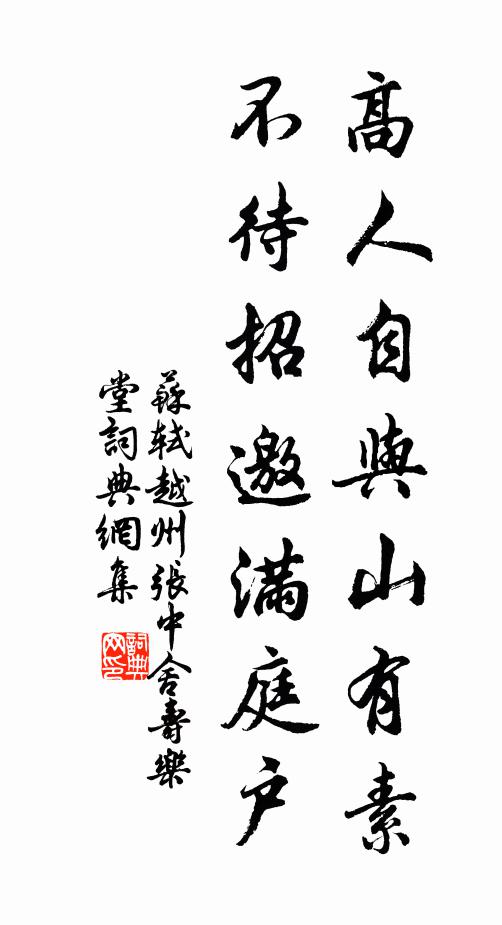 高人自與山有素
不待招邀滿庭户
蘇軾越州張中舍壽樂
堂詞典網集
詞典网印